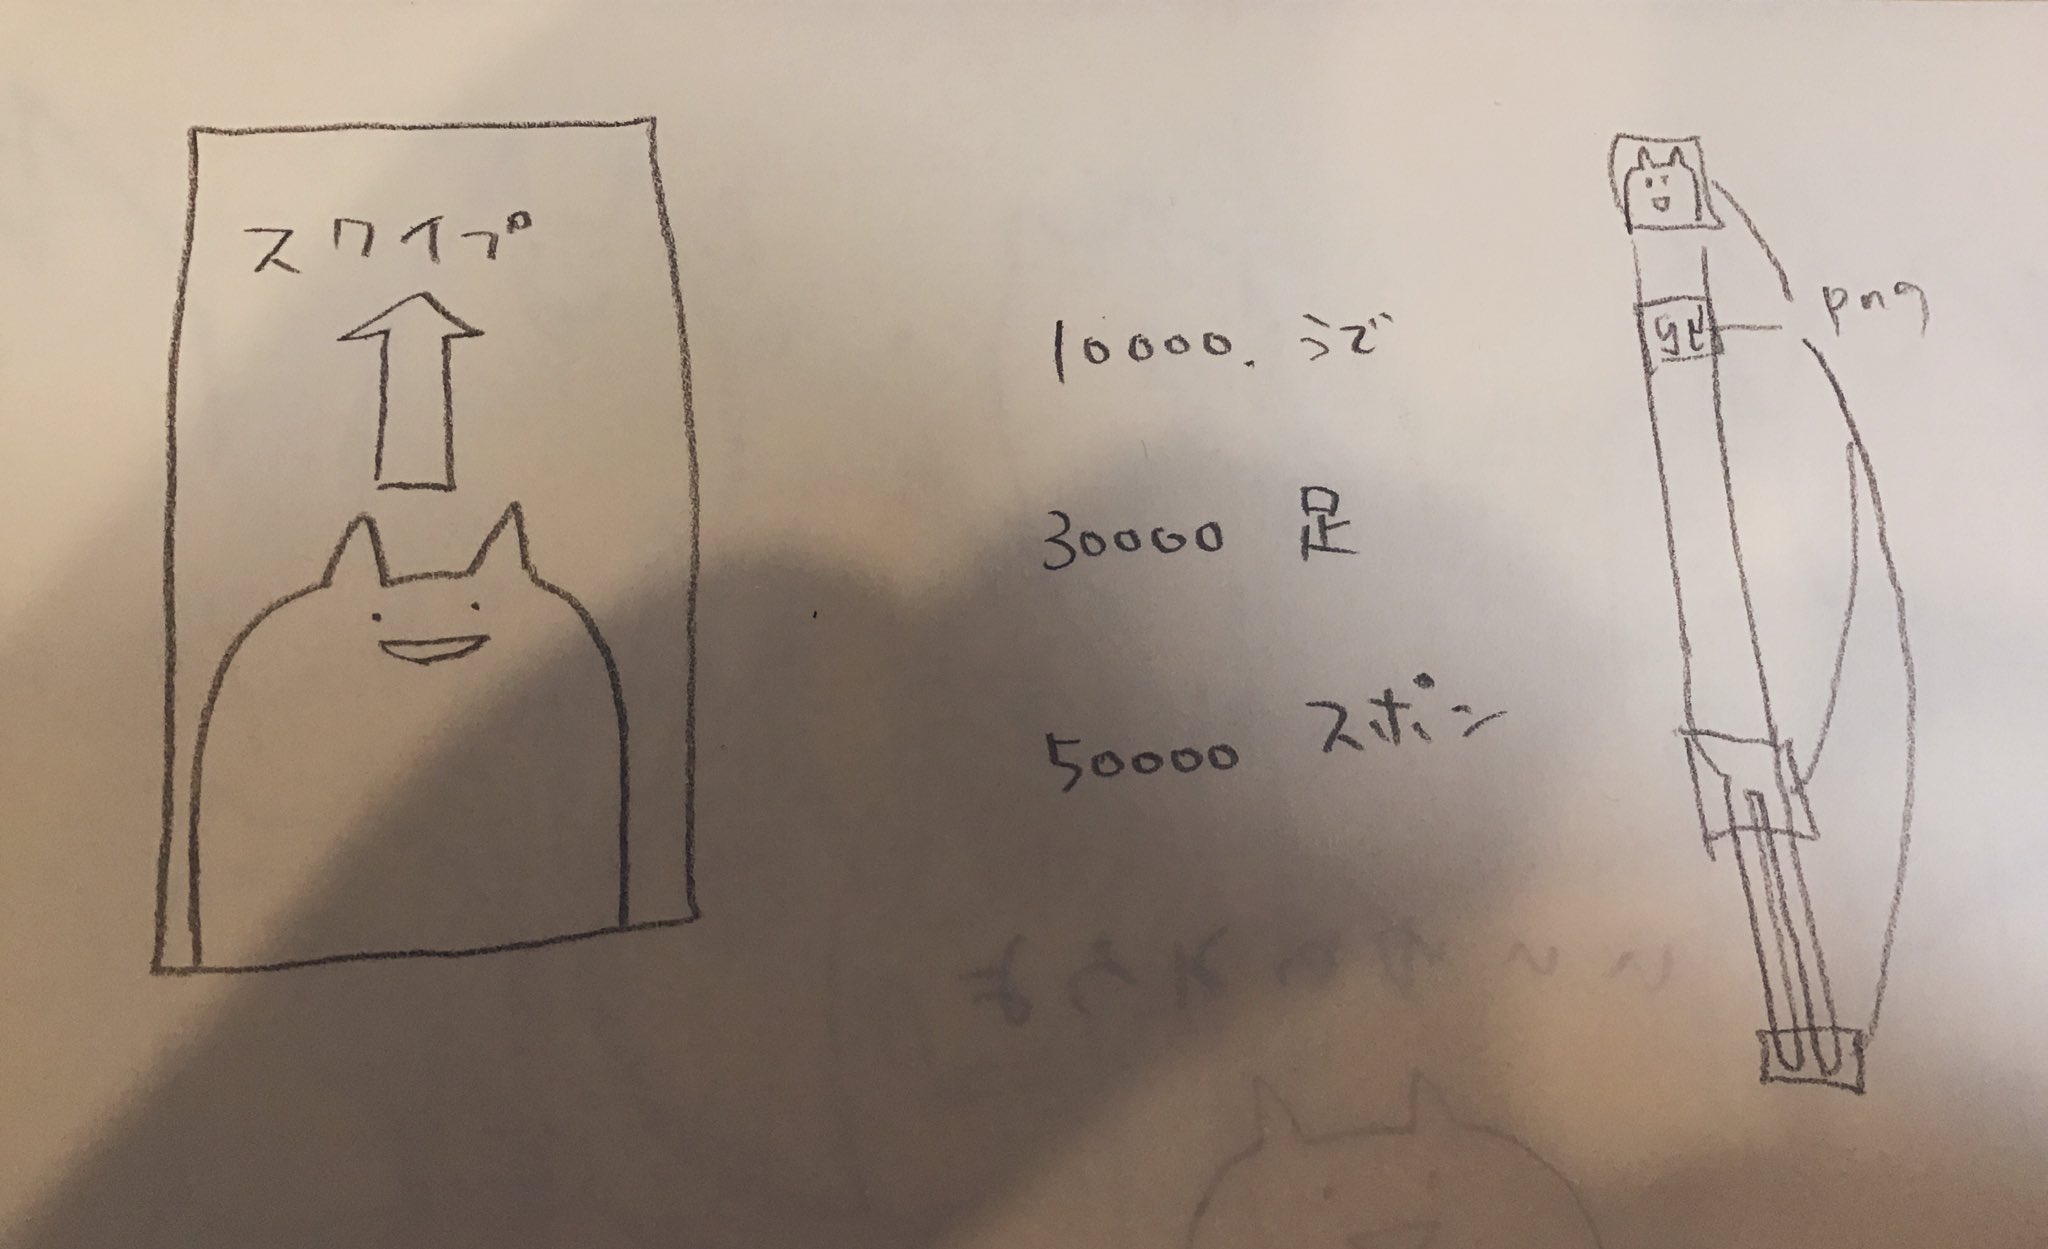 スワイプ
10000. うで
30000 足
50000 スポン
png